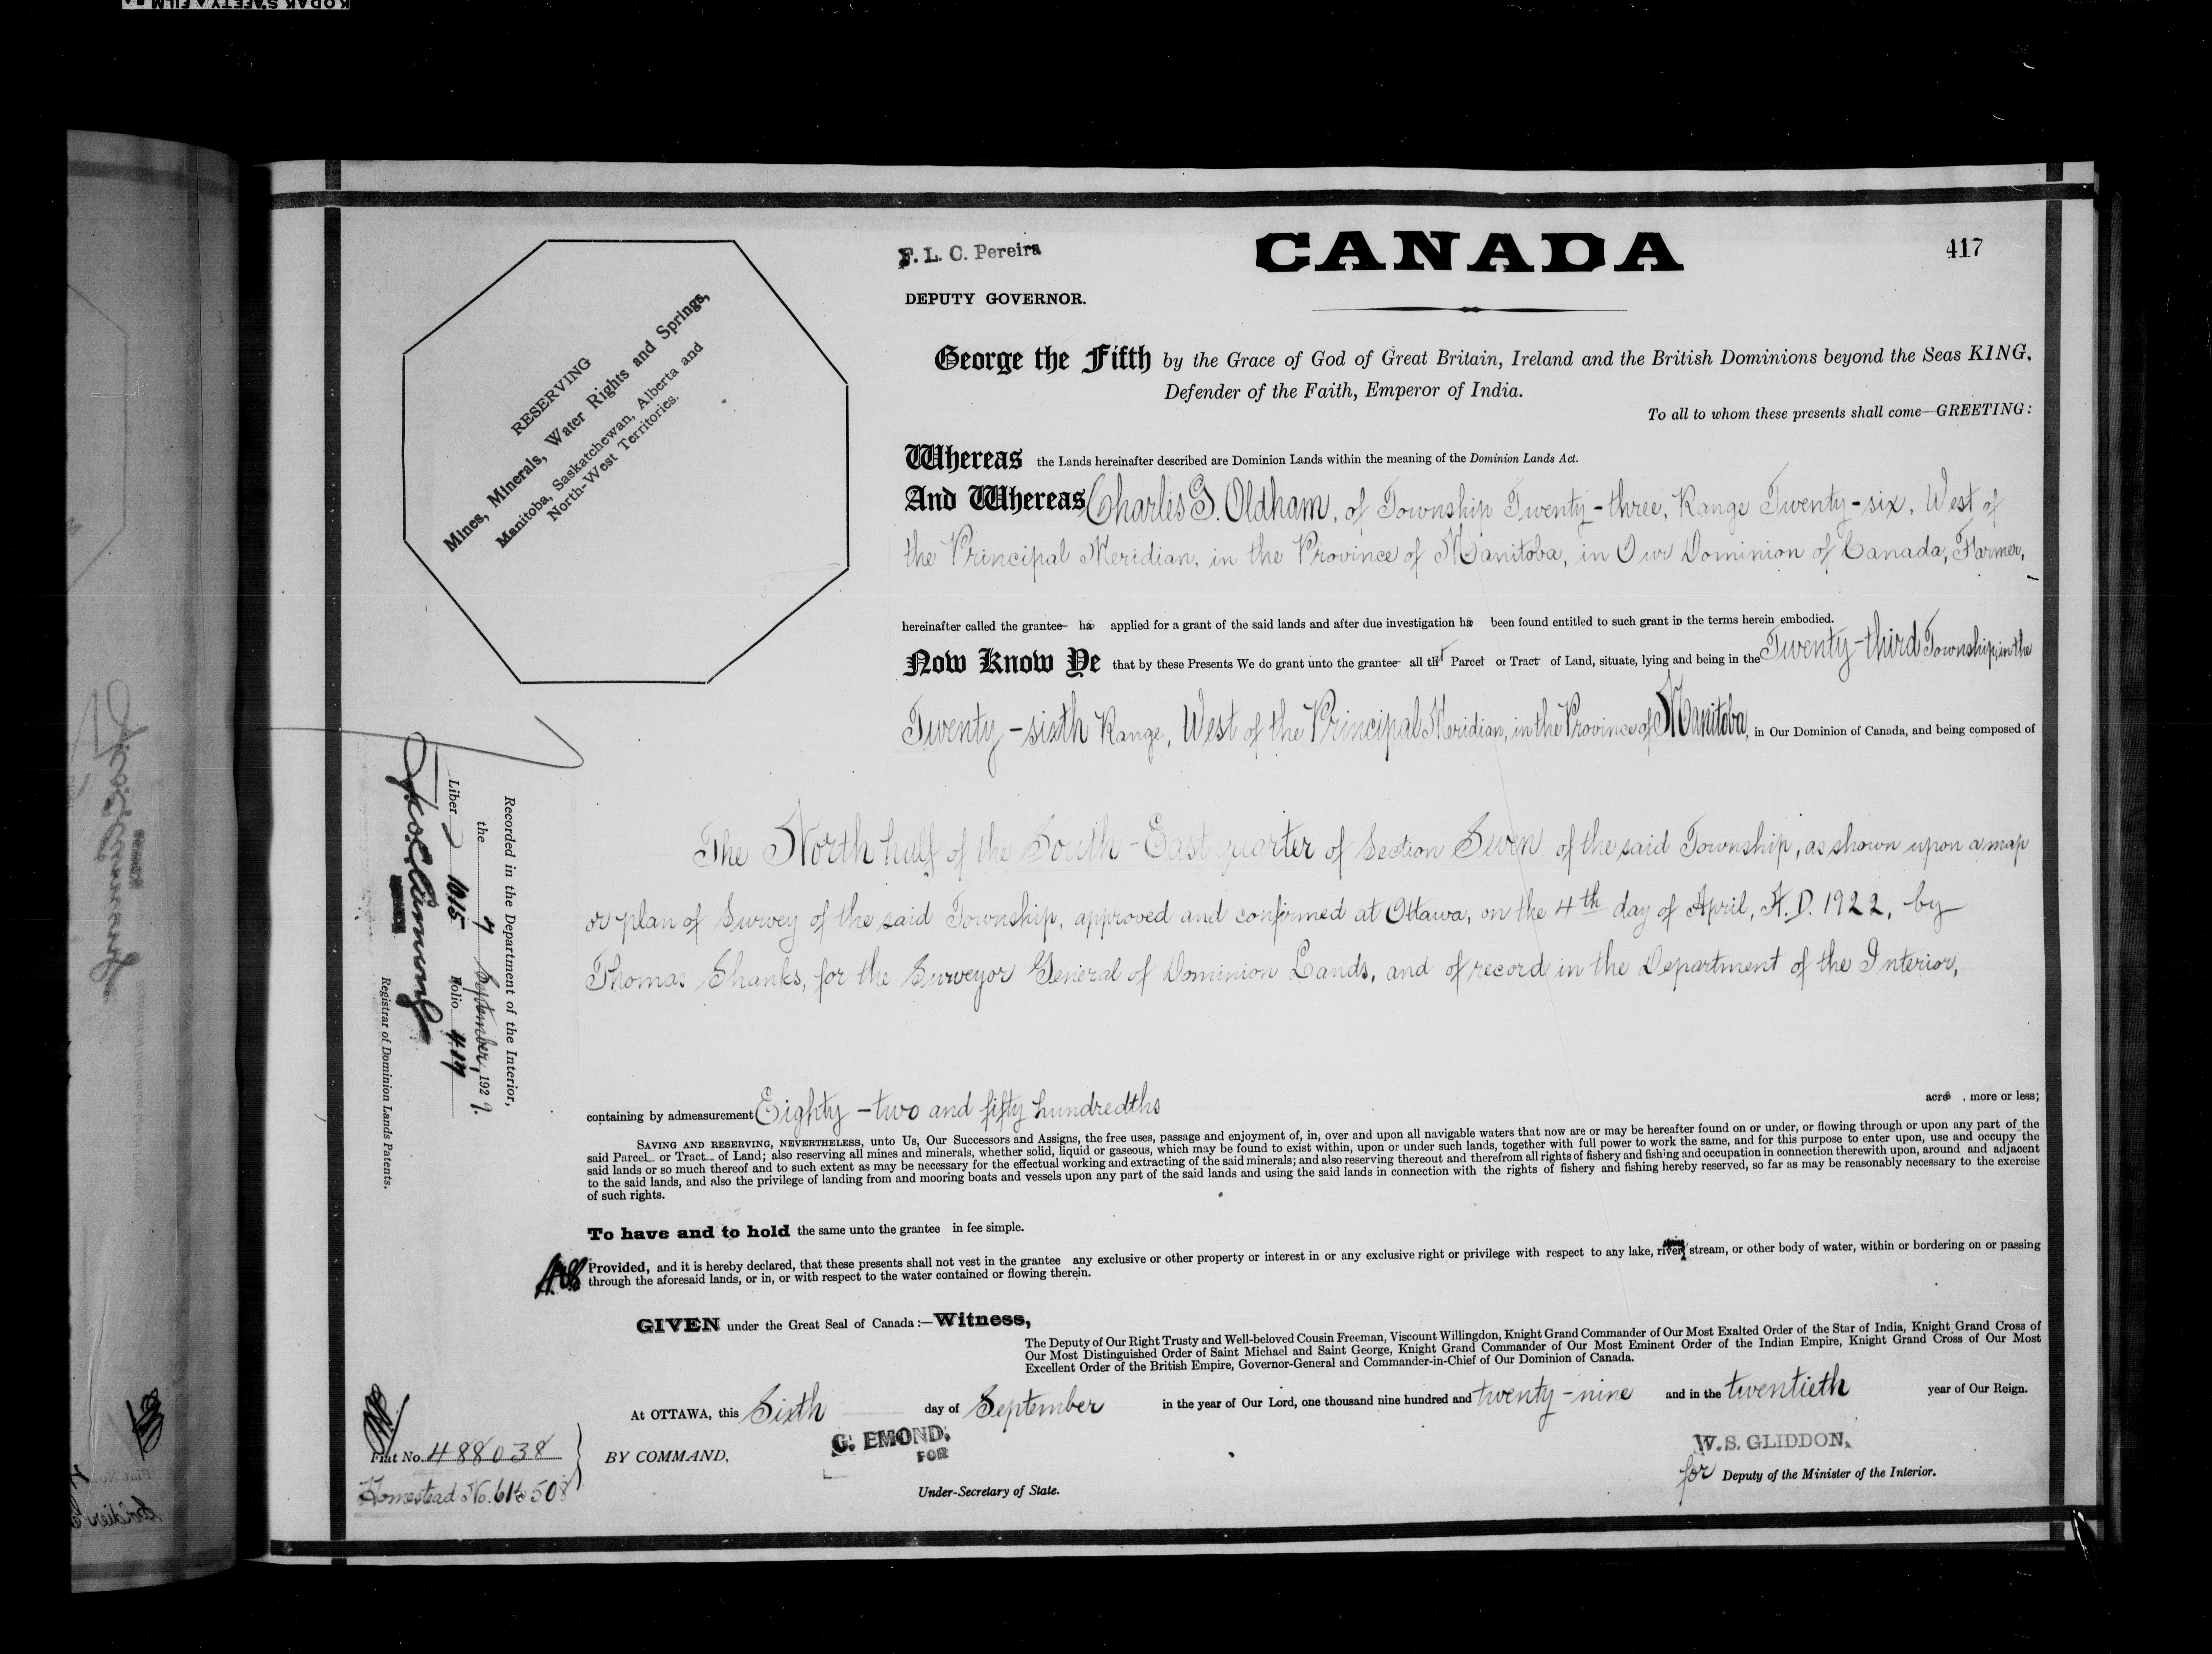 KODAK SAFETY FILM
F. L. C. Pereira
DEPUTY GOVERNOR.
CANADA
417
RESERVING
Mines, Minerals, Water Rights and Springs,
Manitoba, Saskatchewan, Alberta and
North-West Territories.
George the Fifth by the Grace of God of Great Britain, Ireland and the British Dominions beyond the Seas KING,
Defender of the Faith, Emperor of India.
To all to whom these presents shall come—GREETING:
Whereas the Lands hereinafter described are Dominion Lands within the meaning of the Dominion Lands Act.
And Whereas Charles G. Oldham, of Township Twenty-three, Range Twenty-six, West of
the Principal Meridian, in the Province of Manitoba, in Our Dominion of Canada, Farmer,
hereinafter called the grantee has applied for a grant of the said lands and after due investigation has been found entitled to such grant in the terms herein embodied.
Now Know Ye that by these Presents We do grant unto the grantee all that Parcel or Tract of Land, situate, lying and being in the Twenty-third Township, in the
Twenty-sixth Range, West of the Principal Meridian, in the Province of Manitoba, in Our Dominion of Canada, and being composed of
The North half of the South-East quarter of Section Seven of the said Township, as shown upon a map
or plan of Survey of the said Township, approved and confirmed at Ottawa, on the 4th day of April, A.D. 1922, by
Thomas Shanks, for the Surveyor General of Dominion Lands, and of record in the Department of the Interior,
containing by admeasurement Eighty-two and fifty hundredths acres, more or less;
SAVING AND RESERVING, NEVERTHELESS, unto Us, Our Successors and Assigns, the free uses, passage and enjoyment of, in, over and upon all navigable waters that now are or may be hereafter found on or under, or flowing through or upon any part of the
said Parcel or Tract of Land; also reserving all mines and minerals, whether solid, liquid or gaseous, which may be found to exist within, upon or under such lands, together with full power to work the same, and for this purpose to enter upon, use and occupy the
said lands or so much thereof and to such extent as may be necessary for the effectual working and extracting of the said minerals; and also reserving thereout and therefrom all rights of fishery and fishing and occupation in connection therewith upon, around and adjacent
to the said lands, and also the privilege of landing from and mooring boats and vessels upon any part of the said lands and using the said lands in connection with the rights of fishery and fishing hereby reserved, so far as may be reasonably necessary to the exercise
of such rights.
To have and to hold the same unto the grantee in fee simple.
Provided, and it is hereby declared, that these presents shall not vest in the grantee any exclusive or other property or interest in or any exclusive right or privilege with respect to any lake, river, stream, or other body of water, within or bordering on or passing
through the aforesaid lands, or in, or with respect to the water contained or flowing therein.
GIVEN under the Great Seal of Canada:—Witness,
The Deputy of Our Right Trusty and Well-beloved Cousin Freeman, Viscount Willingdon, Knight Grand Commander of Our Most Exalted Order of the Star of India, Knight Grand Cross of
Our Most Distinguished Order of Saint Michael and Saint George, Knight Grand Commander of Our Most Eminent Order of the Indian Empire, Knight Grand Cross of Our Most
Excellent Order of the British Empire, Governor-General and Commander-in-Chief of Our Dominion of Canada.
At OTTAWA, this Sixth day of September in the year of Our Lord, one thousand nine hundred and twenty-nine and in the twentieth year of Our Reign.
BY COMMAND,
G. EMOND.
FOR
Under-Secretary of State.
W. S. GLIDDON.
for Deputy of the Minister of the Interior.
Fiat No. 488038
Homestead No.
Recorded in the Department of the Interior,
the 7 September, 1929.
Liber 1015 Folio 417
Registrar of Dominion Lands Patents.